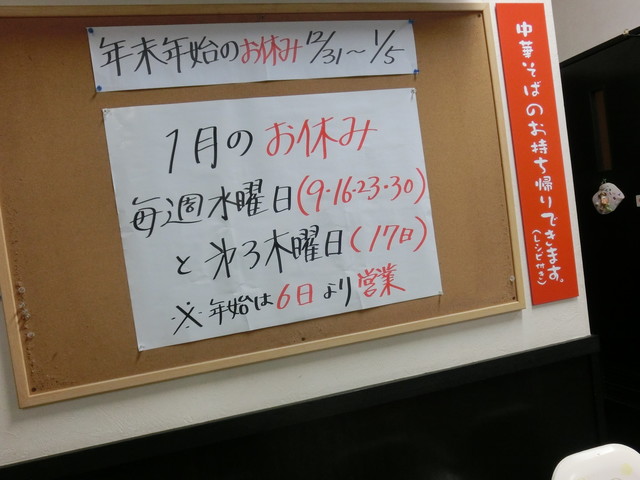 年末年始のお休み 12/31〜1/5
1月のお休み
毎週水曜日(9・16・23・30)
と㐧3木曜日(17日)
※年始は6日より営業
中華そばのお持ち帰りできます。
(レシピ付き)